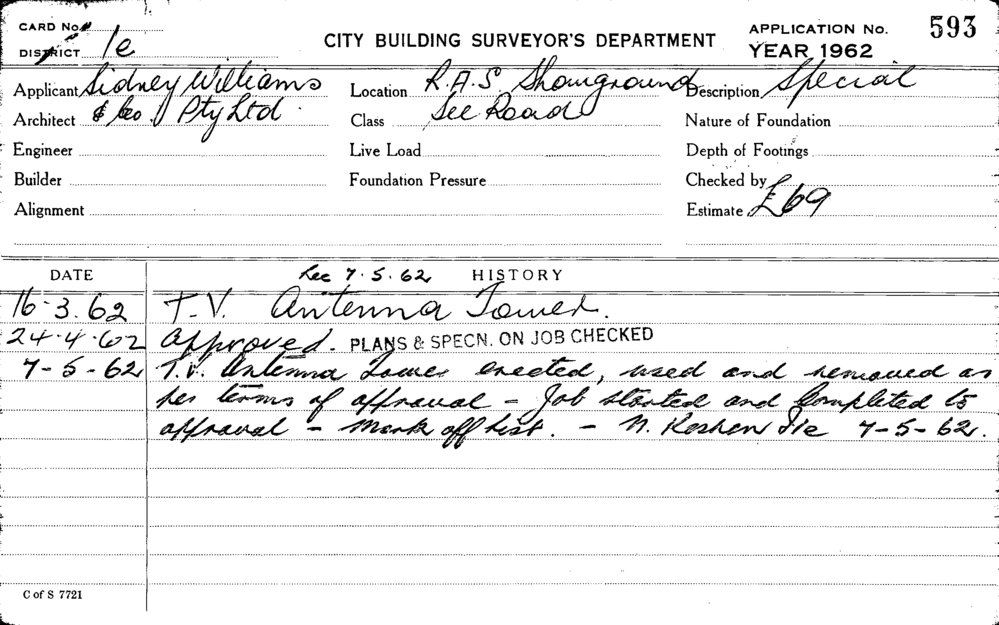 CARD No. CITY BUILDING SURVEYOR'S DEPARTMENT APPLICATION No. 593
DISTRICT 1e YEAR 1962
Applicant Sidney Williams Location R.A.S. Showground Description Special
Architect & Co. Pty Ltd Class See Road Nature of Foundation
Engineer Live Load Depth of Footings
Builder Foundation Pressure Checked by
Alignment Estimate £69
DATE Rec 7.5.62 HISTORY
16-3.62 T.V. Antenna Tower.
24.4.62 Approved. PLANS & SPECN. ON JOB CHECKED
7-5-62 T.V. Antenna Tower erected, used and removed as
per terms of approval - Job started and Completed to
approval - Mark off list. - N. 7-5-62.
C of S 7721